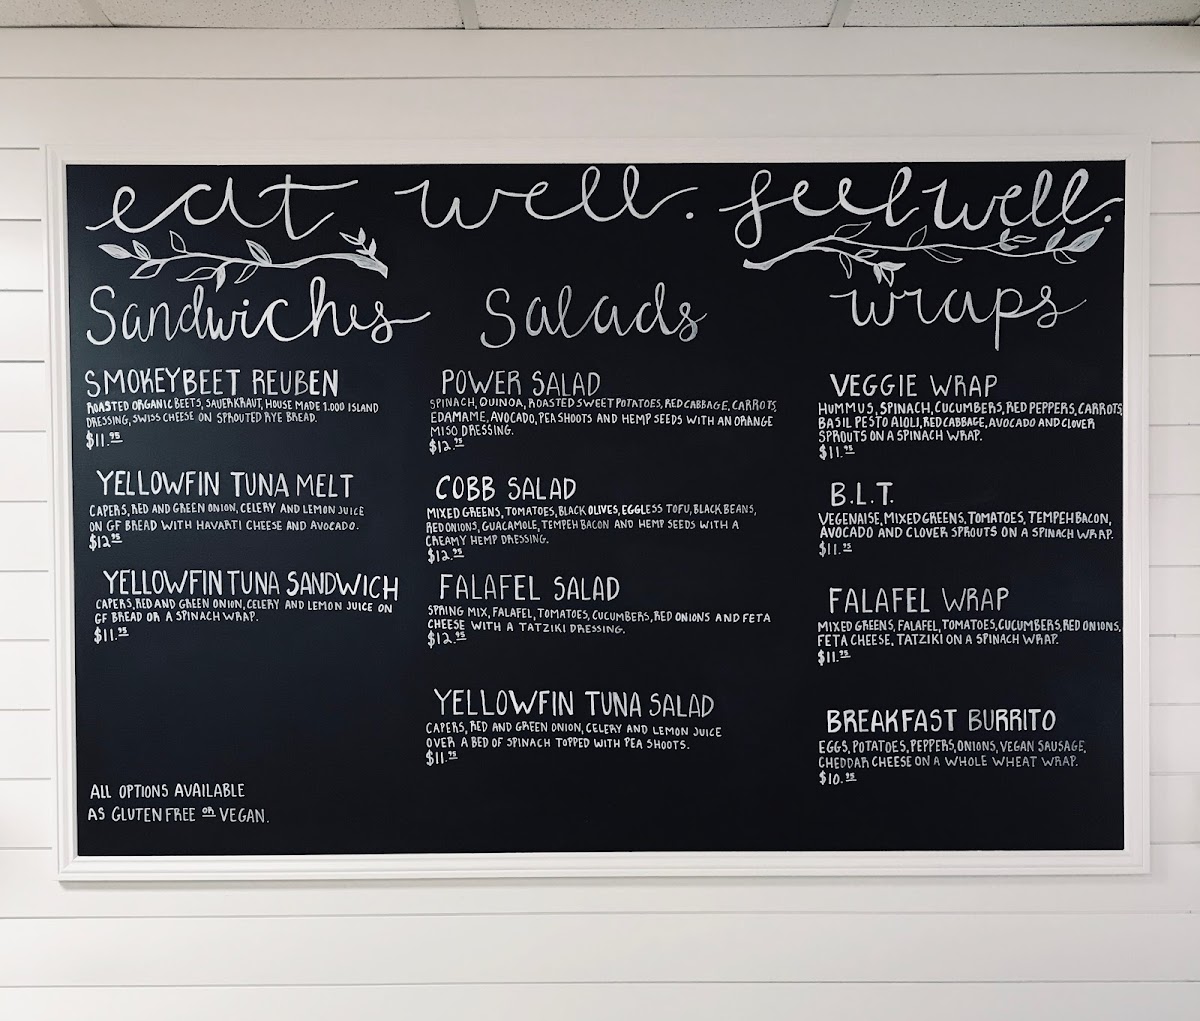 eat well. feel well.
Sandwiches
SMOKEY BEET REUBEN
ROASTED ORGANIC BEETS, SAUERKRAUT, HOUSE MADE 1.000 ISLAND
DRESSING, SWISS CHEESE ON SPROUTED RYE BREAD.
$11.95
YELLOWFIN TUNA MELT
CAPERS, RED AND GREEN ONION, CELERY AND LEMON JUICE
ON GF BREAD WITH HAVARTI CHEESE AND AVOCADO.
$12.95
YELLOWFIN TUNA SANDWICH
CAPERS, RED AND GREEN ONION, CELERY AND LEMON JUICE ON
GF BREAD OR A SPINACH WRAP.
$11.95
ALL OPTIONS AVAILABLE
AS GLUTEN FREE OR VEGAN.
Salads
POWER SALAD
SPINACH, QUINOA, ROASTED SWEET POTATOES, RED CABBAGE, CARROTS,
EDAMAME, AVOCADO, PEA SHOOTS AND HEMP SEEDS WITH AN ORANGE
MISO DRESSING.
$12.95
COBB SALAD
MIXED GREENS, TOMATOES, BLACK OLIVES, EGGLESS TOFU, BLACK BEANS,
RED ONIONS, GUACAMOLE, TEMPEH BACON AND HEMP SEEDS WITH A
CREAMY HEMP DRESSING.
$12.95
FALAFEL SALAD
SPRING MIX, FALAFEL, TOMATOES, CUCUMBERS, RED ONIONS AND FETA
CHEESE WITH A TATZIKI DRESSING.
$12.95
YELLOWFIN TUNA SALAD
CAPERS, RED AND GREEN ONION, CELERY AND LEMON JUICE
OVER A BED OF SPINACH TOPPED WITH PEA SHOOTS.
$11.95
wraps
VEGGIE WRAP
HUMMUS, SPINACH, CUCUMBERS, RED PEPPERS, CARROTS
BASIL PESTO AIOLI, RED CABBAGE, AVOCADO AND CLOVER
SPROUTS ON A SPINACH WRAP.
$11.95
B.L.T.
VEGENAISE, MIXED GREENS, TOMATOES, TEMPEH BACON,
AVOCADO AND CLOVER SPROUTS ON A SPINACH WRAP.
$11.95
FALAFEL WRAP
MIXED GREENS, FALAFEL, TOMATOES, CUCUMBERS, RED ONIONS,
FETA CHEESE, TATZIKI ON A SPINACH WRAP.
$11.95
BREAKFAST BURRITO
EGGS, POTATOES, PEPPERS, ONIONS, VEGAN SAUSAGE,
CHEDDAR CHEESE ON A WHOLE WHEAT WRAP.
$10.95